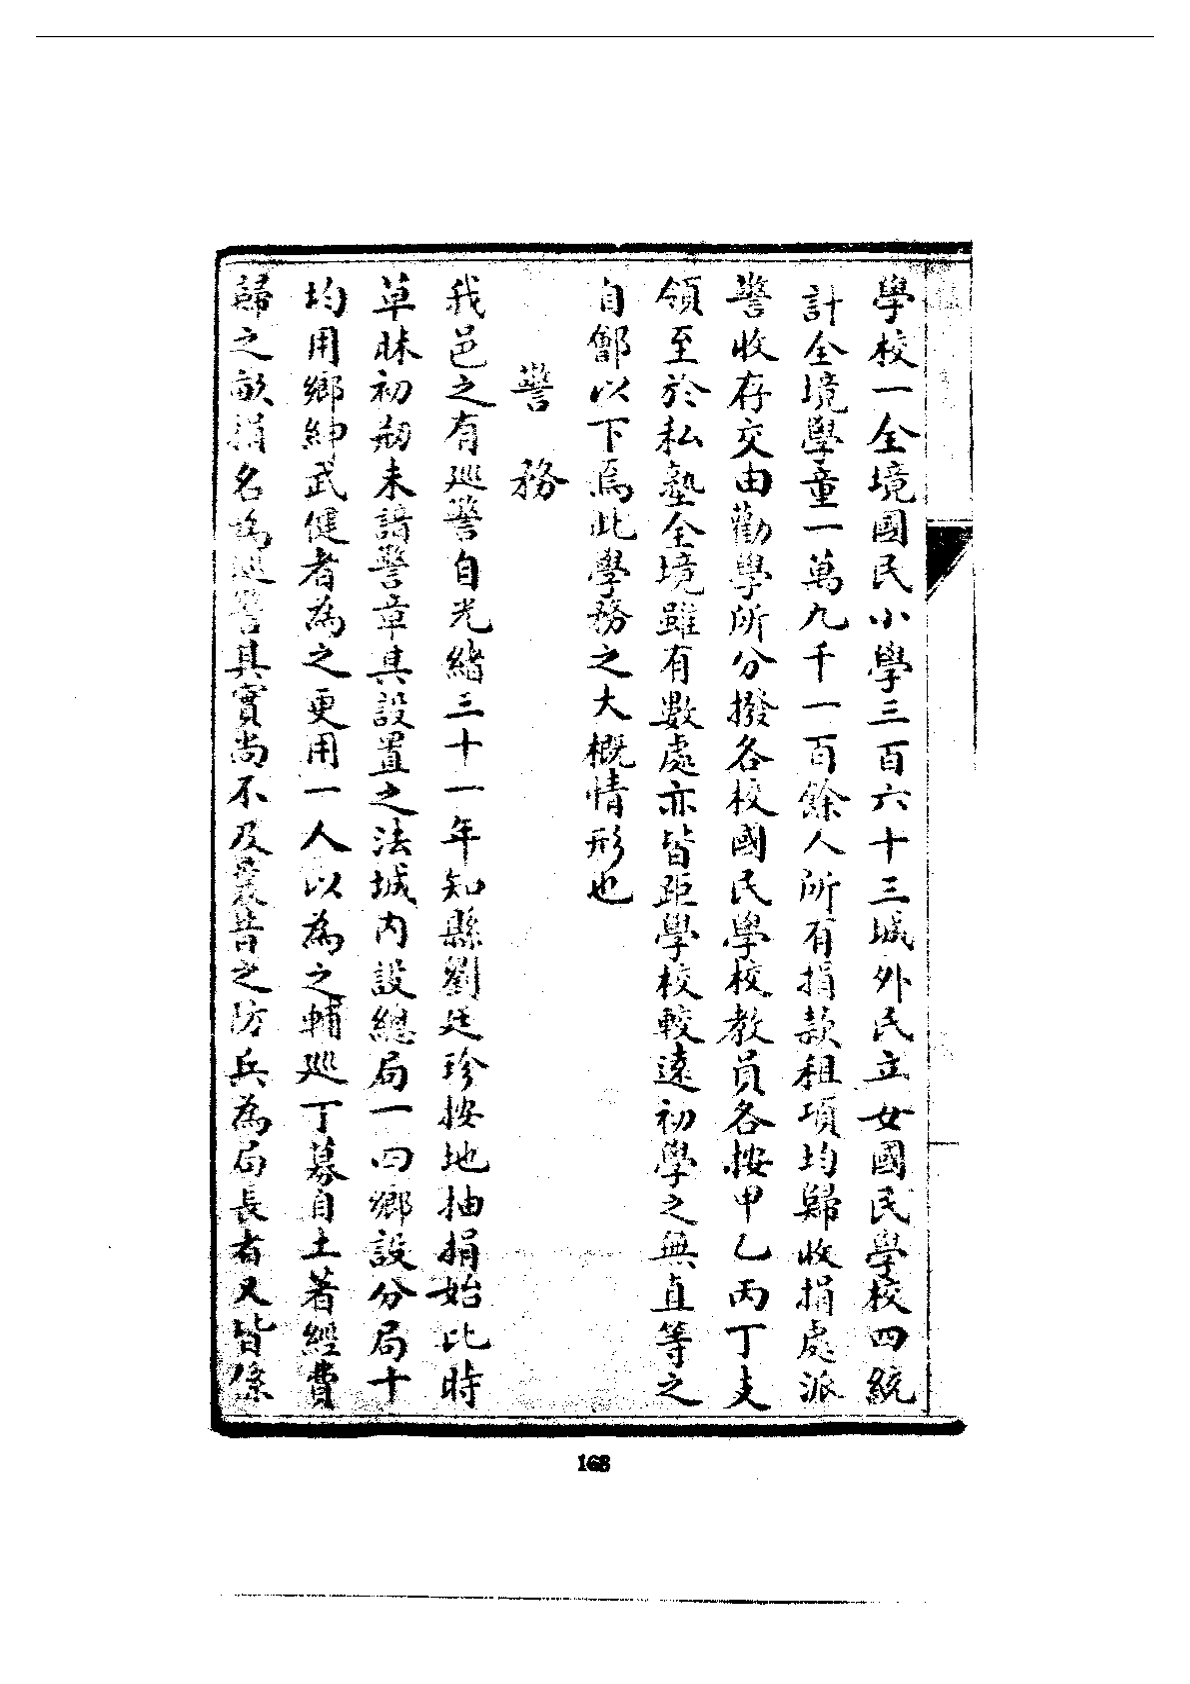 學校一全境國民小學三百六十三城外民立女國民學校四統
計全境學童一萬九千一百餘人所有捐款租項均歸收捐處派
警收存交由勸學所分撥各校國民學校教員各按甲乙丙丁支
領至於私塾全境雖有數處亦皆距學校較遠初學之無直等之
自鄶以下焉此學務之大概情形也
警務
我邑之有巡警自光緒三十一年知縣劉廷珍按地抽捐始比時
草昧初刱未諳警章其設置之法城內設總局一四鄉設分局十
均用鄉紳武健者為之更用一人以為之輔巡丁募自土著經費
歸之畝捐名為巡警其實尚不及曩昔之防兵為局長者又皆係
168